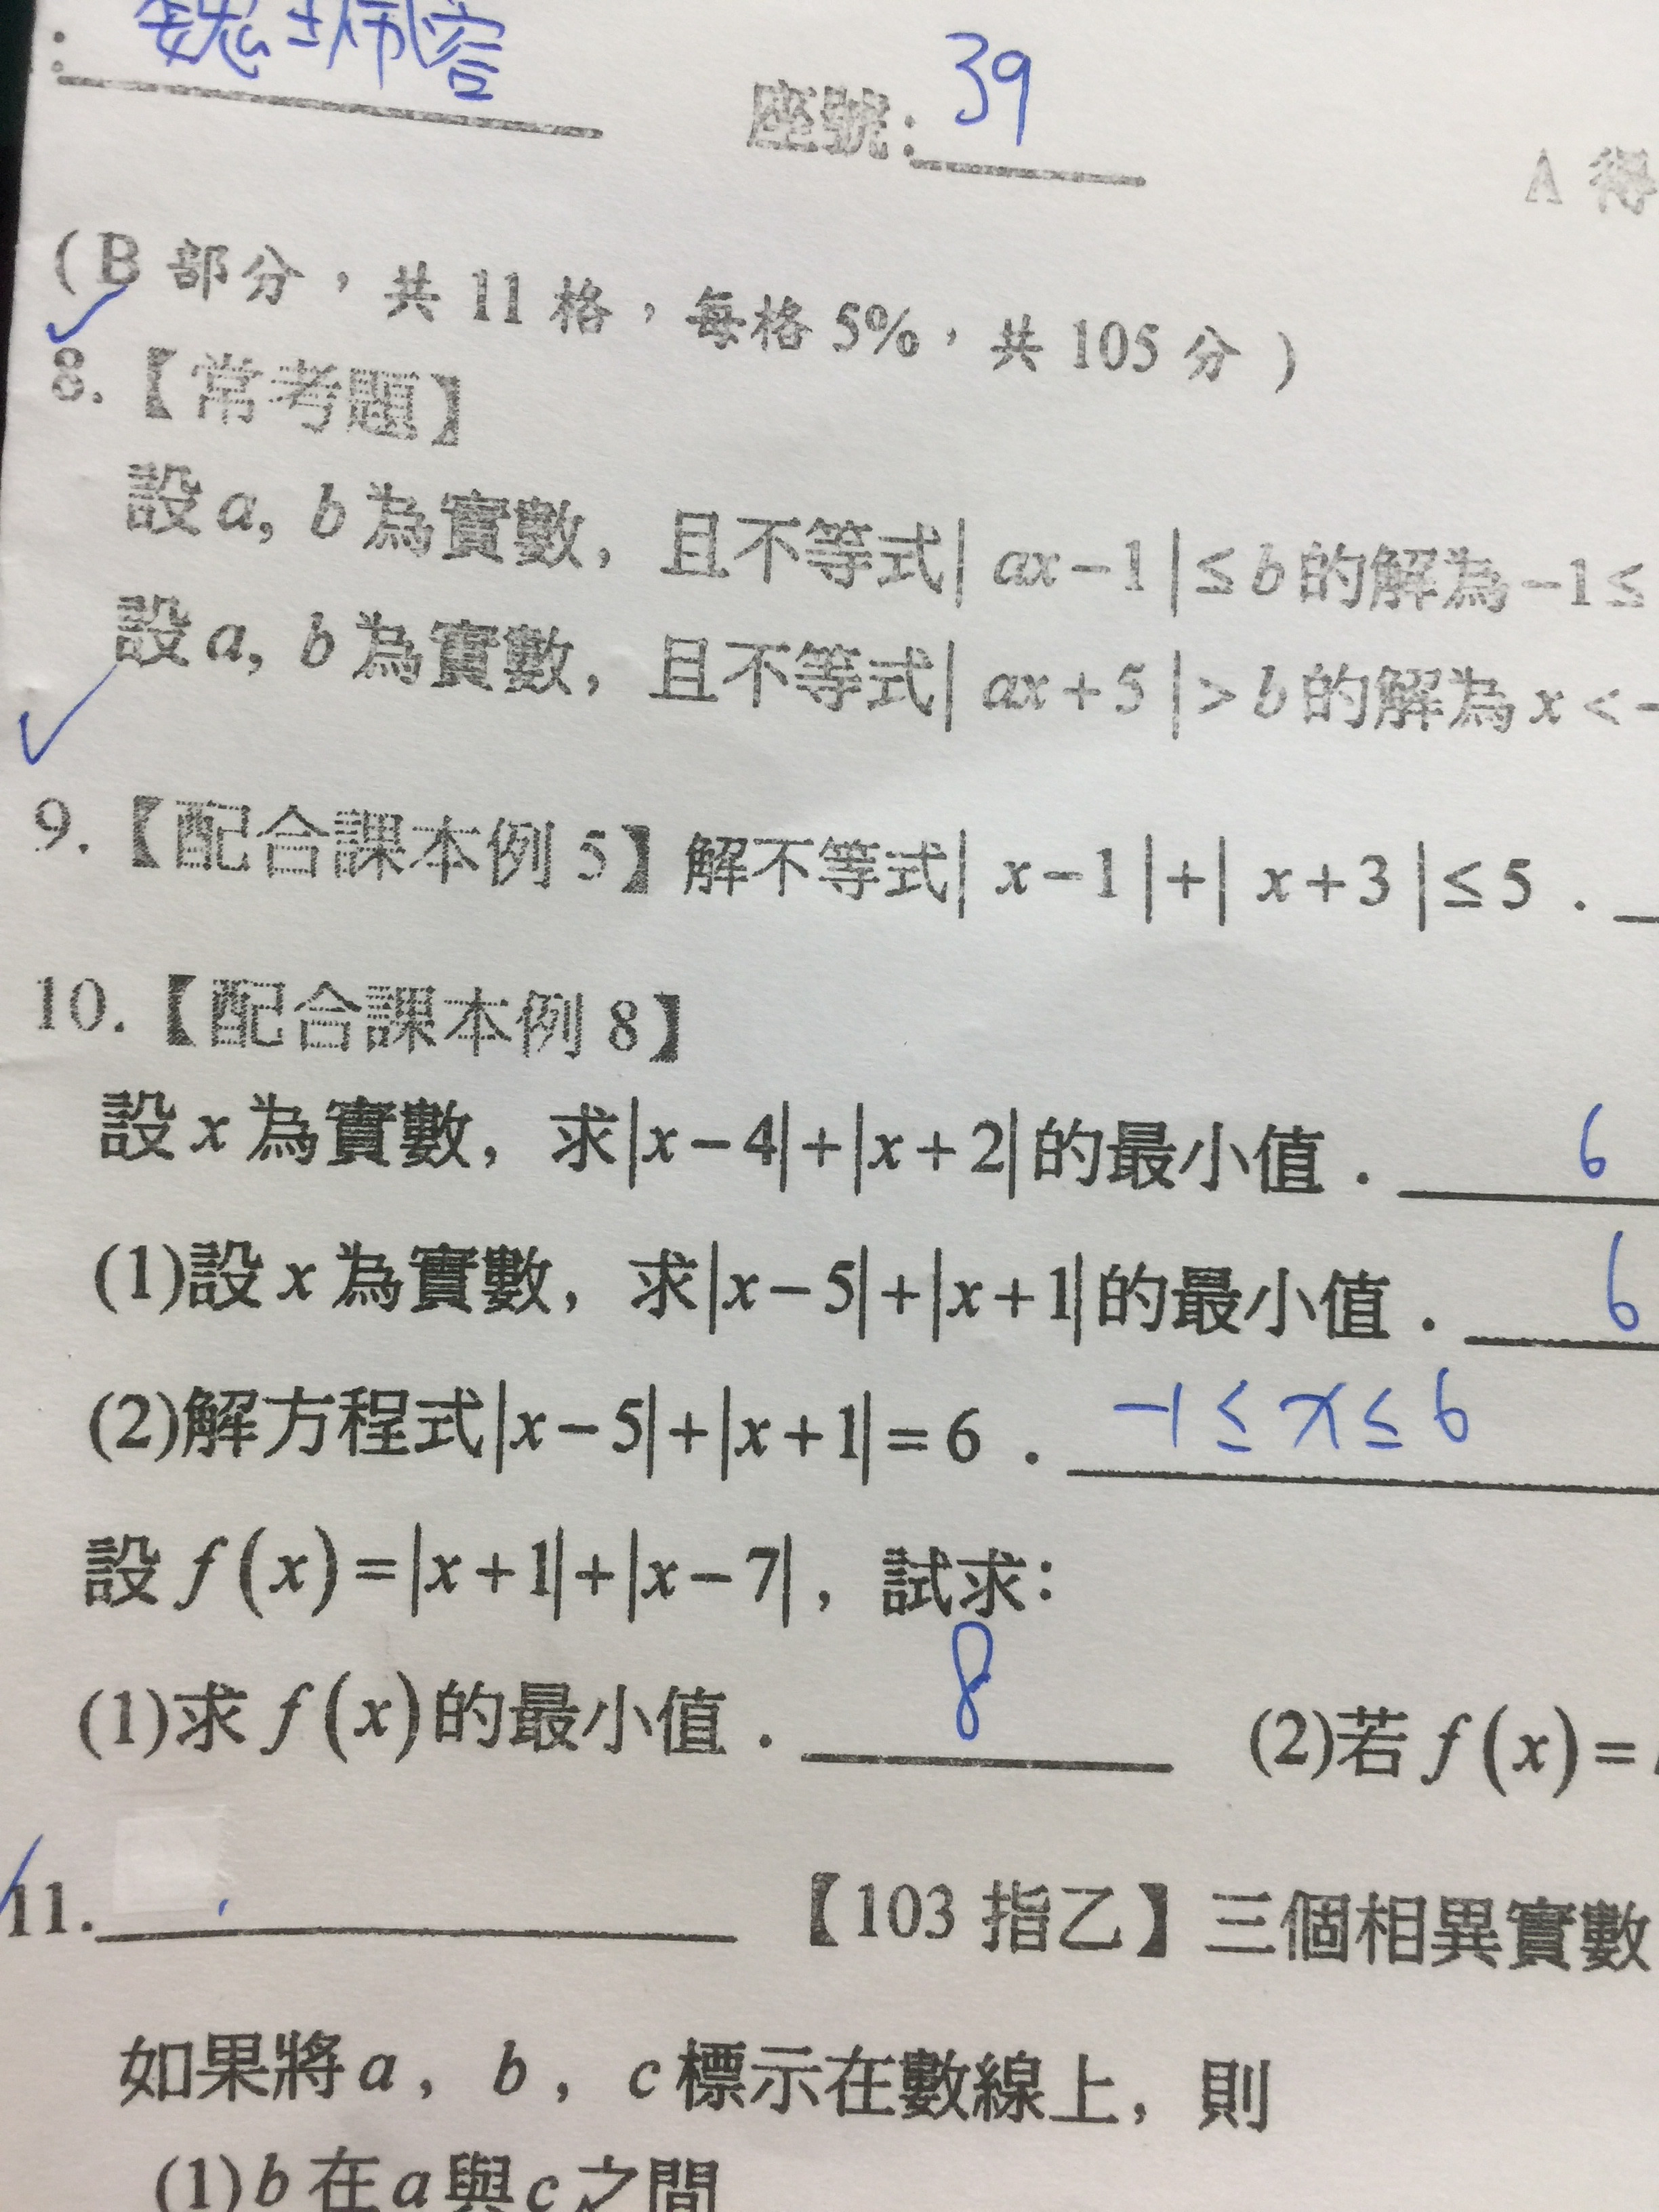 座號: 39
A 得
(B 部分，共 11 格，每格 5%，共 105 分)
8.【常考題】
設 a, b 為實數，且不等式| ax-1 |≤b 的解為 -1≤
設 a, b 為實數，且不等式| ax+5 |>b 的解為 x<-
9.【配合課本例 5】解不等式| x-1 |+| x+3 |≤5 .
10.【配合課本例 8】
設 x 為實數，求|x-4|+|x+2|的最小值. 6
(1)設 x 為實數，求|x-5|+|x+1|的最小值. 6
(2)解方程式|x-5|+|x+1|=6 . -1≤x≤6
設 f(x)=|x+1|+|x-7|，試求:
(1)求 f(x)的最小值. 8 (2)若 f(x)=
11. 【103 指乙】三個相異實數
如果將 a，b，c 標示在數線上，則
(1)b 在 a 與 c 之間